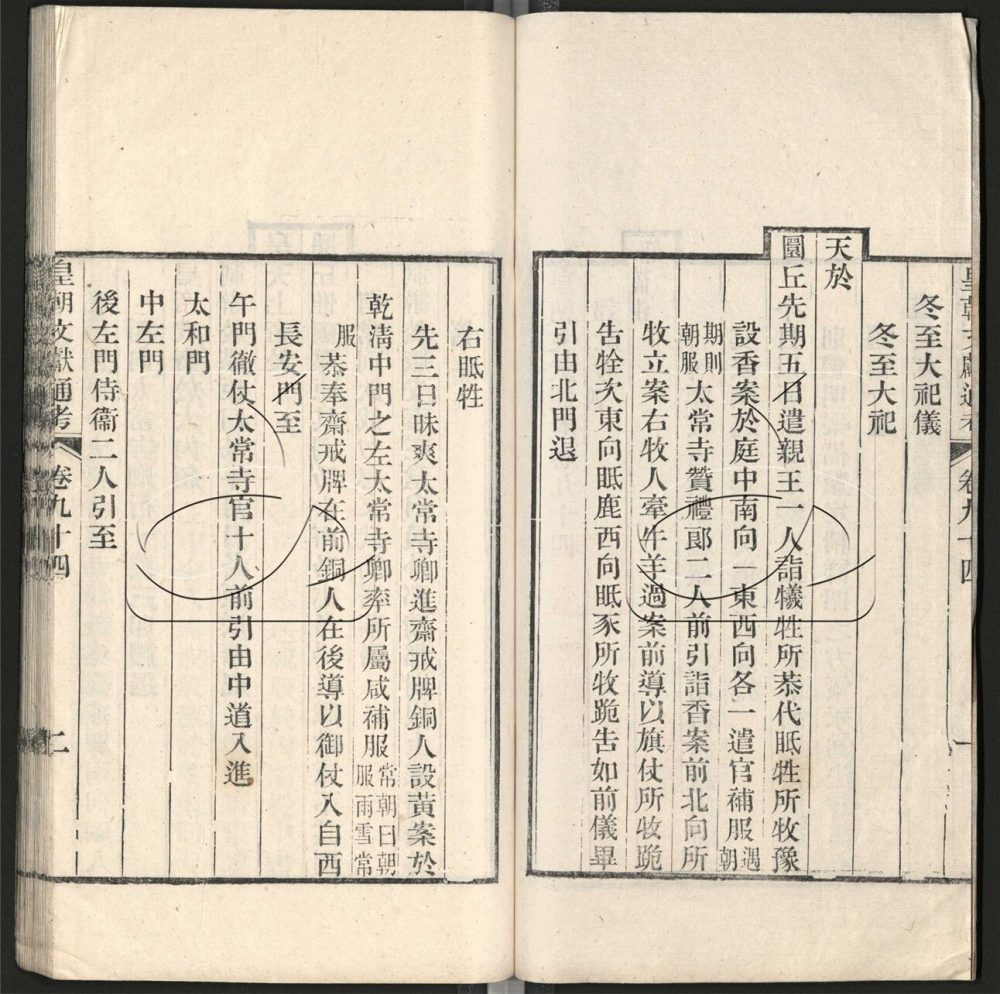 皇朝文獻通考 卷九十四 一
冬至大祀儀
冬至大祀
天於
圜丘先期五日遣親王一人詣犧牲所恭代眂牲所牧豫
設香案於庭中南向一東西向各一遣官補服遇朝
期則朝服太常寺贊禮郎二人前引詣香案前北向所
牧立案右牧人牽牛羊過案前導以旗仗所牧跪
告牷次東向眂鹿西向眂豕所牧跪告如前儀畢
引由北門退
右眂牲
先三日昧爽太常寺卿進齋戒牌銅人設黃案於
乾清中門之左太常寺卿率所屬咸補服常朝日朝服雨雪常
服恭奉齋戒牌在前銅人在後導以御仗入自西
長安門至
午門徹仗太常寺官十人前引由中道入進
太和門
中左門
後左門侍衞二人引至
皇朝文獻通考 卷九十四 二